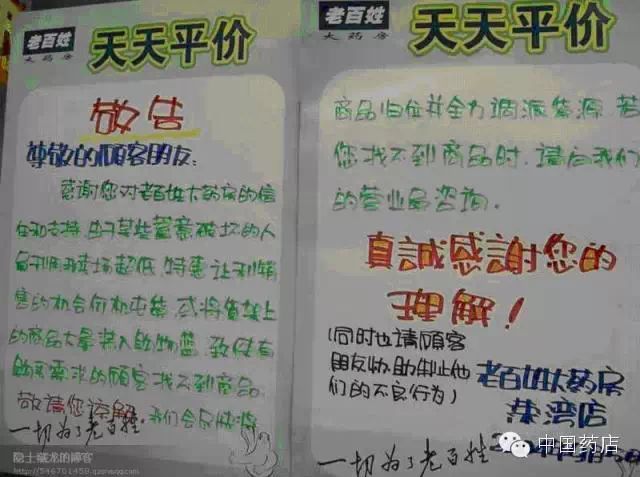 老百姓
大药房
天天平价
敬告
尊敬的顾客朋友:
感谢您对老百姓大药房的信
任和支持.由于某些蓄意破坏的人
员利用我卖场超低特惠让利销
售的机会伺机屯货,或将货架上
的商品大量装入购物篮,致使有
购买需求的顾客找不到商品.
敬请您谅解.我们会尽快将
一切为了老百姓
隐士藏龙的博客
老百姓
大药房
天天平价
商品归位并全力调派货源.若
您找不到商品时,请向我们
的营业员咨询.
真誠感謝您的
理解!
(同时也请顾客
朋友协助制止他
们的不良行为)
老百姓大药房
荣湾店
一切为了老百姓
中国药店